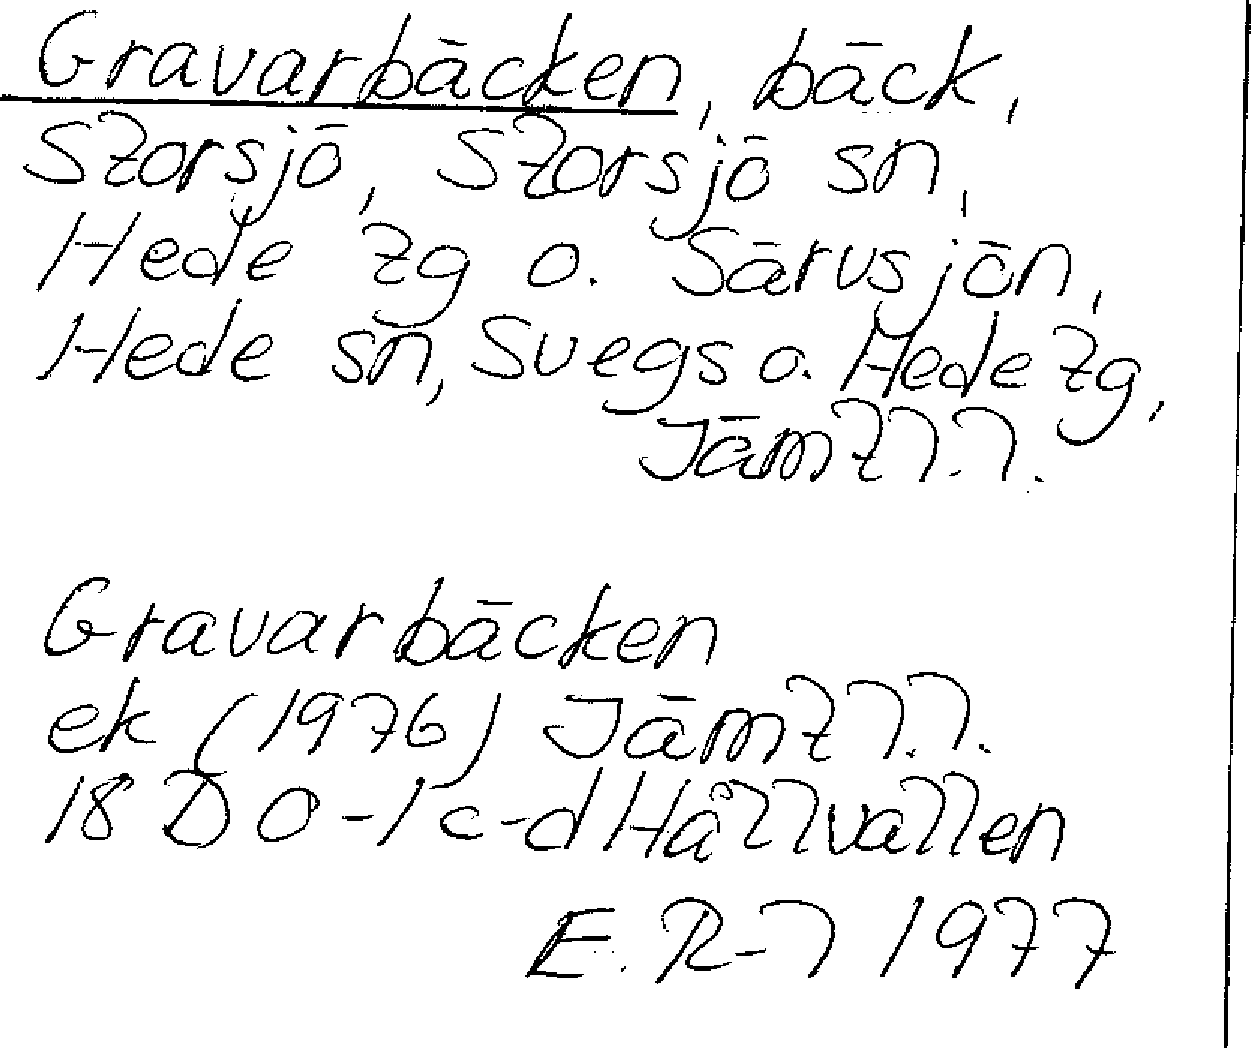 Gravarbäcken, bäck,
Storsjö, Storsjö sn,
Hede tg o. Särvsjön,
Hede sn, Svegs o. Hede tg,
Jämtl.l.
Gravarbäcken
ek (1976) Jämtl.l.
18 D 0-1 c-d Hållvallen
E. R-l 1977